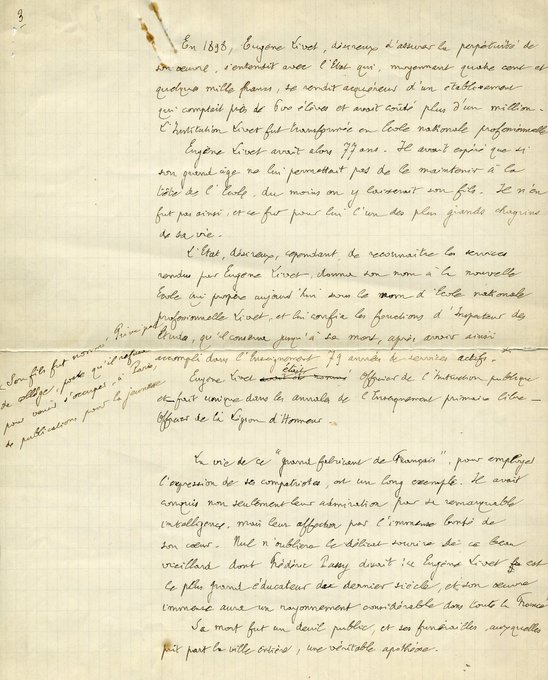 3
En 1898, Eugène Livet, désireux d'assurer la perpétuité de
son œuvre, s'entendit avec l'Etat qui, moyennant quatre cent et
quelques mille francs, se rendit acquéreur d'un établissement
qui comptait près de 600 élèves et avait coûté plus d'un million.
L'Institution Livet fut transformée en Ecole nationale professionnelle
Eugène Livet avait alors 77 ans. Il avait espéré que si
son grand âge ne lui permettait pas de le maintenir à la
tête de l'Ecole, du moins on y laisserait son fils. Il n'en
fut pas ainsi, et ce fut pour lui l'un des plus grands chagrins
de sa vie.
L'Etat, désireux, cependant, de reconnaître les services
rendus par Eugène Livet, donna son nom à la nouvelle
Ecole qui prospère aujourd'hui sous le nom d'Ecole nationale
professionnelle Livet, et lui confia les fonctions d'Inspecteur des
Etudes, qu'il conserva jusqu'à sa mort, après avoir ainsi
accompli dans l'Enseignement 79 années de services actifs.
Son fils fut nommé Principal
de collège, poste qu'il refusa
pour venir s'occuper, à Paris,
de publications pour la jeunesse
Eugène Livet était Officier de l'Instruction publique
et fait unique dans les annales de l'Enseignement primaire libre
Officier de la Légion d'Honneur
La vie de ce "grand fabricant de Français", pour employer
l'expression de ses compatriotes, est un long exemple. Il avait
conquis non seulement leur admiration par sa remarquable
intelligence, mais leur affection par l'immense bonté de
son cœur. Nul n'oubliera le délicat sourire de ce beau
vieillard dont Frédéric Passy disait : "Eugène Livet est
le plus grand éducateur du dernier siècle, et son œuvre
immense aura un rayonnement considérable dans toute la France"
Sa mort fut un deuil public, et ses funérailles, auxquelles
prit part la ville entière, une véritable apothéose.